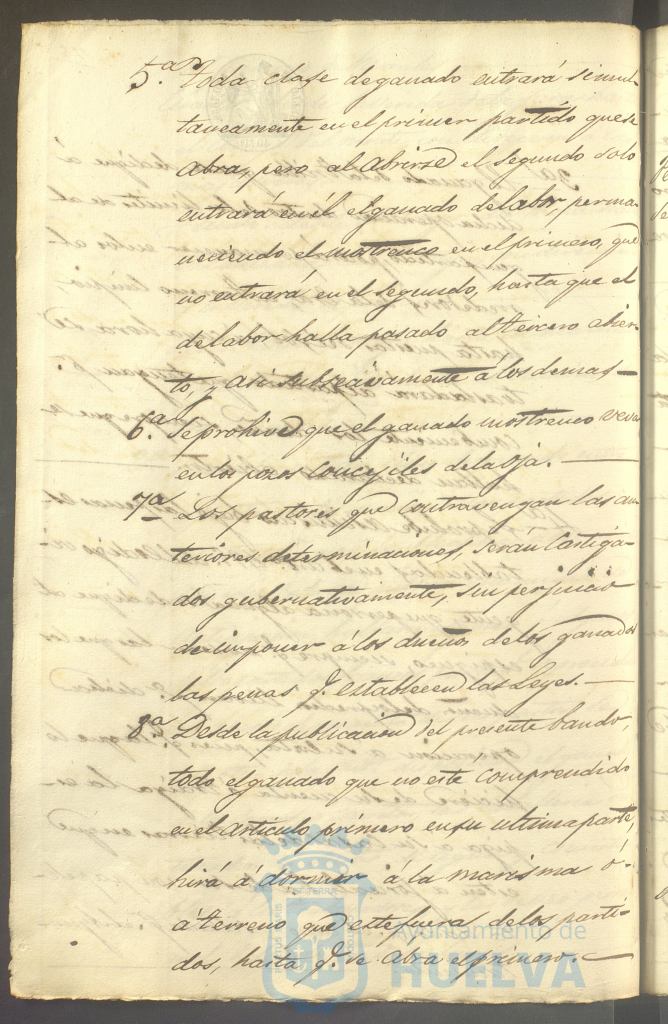 5.ª Toda clase de ganado entrará simul-
taneamente en el primer partido que se
abra, pero al abrirse el segundo solo
entrará en él el ganado de labor, perma-
neciendo el mostrenco en el primero, que
no entrará en el segundo, hasta que el
de labor halla pasado al tercero abier-
to, y asi subsecivamente a los demas—
6.ª Se prohive que el ganado mostrenco veva
en los pozos concejiles de la
7.ª Los pastores que contravengan las an-
teriores determinaciones, serán castiga-
dos gubernativamente, sin perjuicio
de imponer á los dueños de los ganados
las penas q.e establecen las Leyes.—
8.ª Desde la publicacion del presente bando,
todo el ganado que no esté comprendido
en el articulo primero en su ultima parte,
hirá á dormir á la marisma ó
á terreno que esté fuera de los parti-
dos, hasta q.e se abra el primero.—
Ayuntamiento de
HUELVA